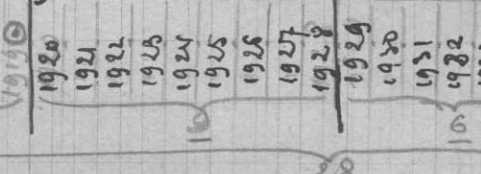 1920
1921
1922
1923
1924
1925
1926
1927
1928
1929
1930
1931
1932
6